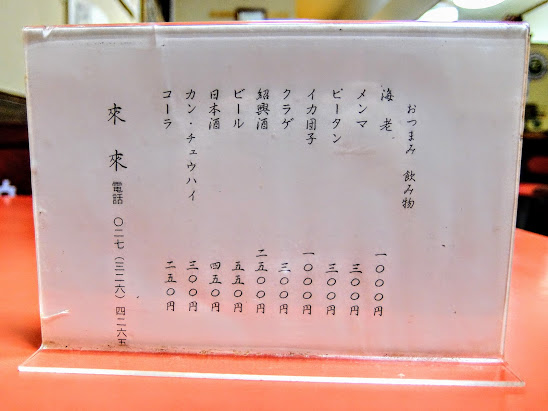 おつまみ 飲み物
海老 一〇〇〇円
メンマ 三〇〇円
ピータン 三〇〇円
イカ団子 一〇〇〇円
クラゲ 三〇〇円
紹興酒 二五〇〇円
ビール 五五〇円
日本酒 四五〇円
カン・チュウハイ 三〇〇円
コーラ 二五〇円
來來 電話 〇二七(三二六)四二六五